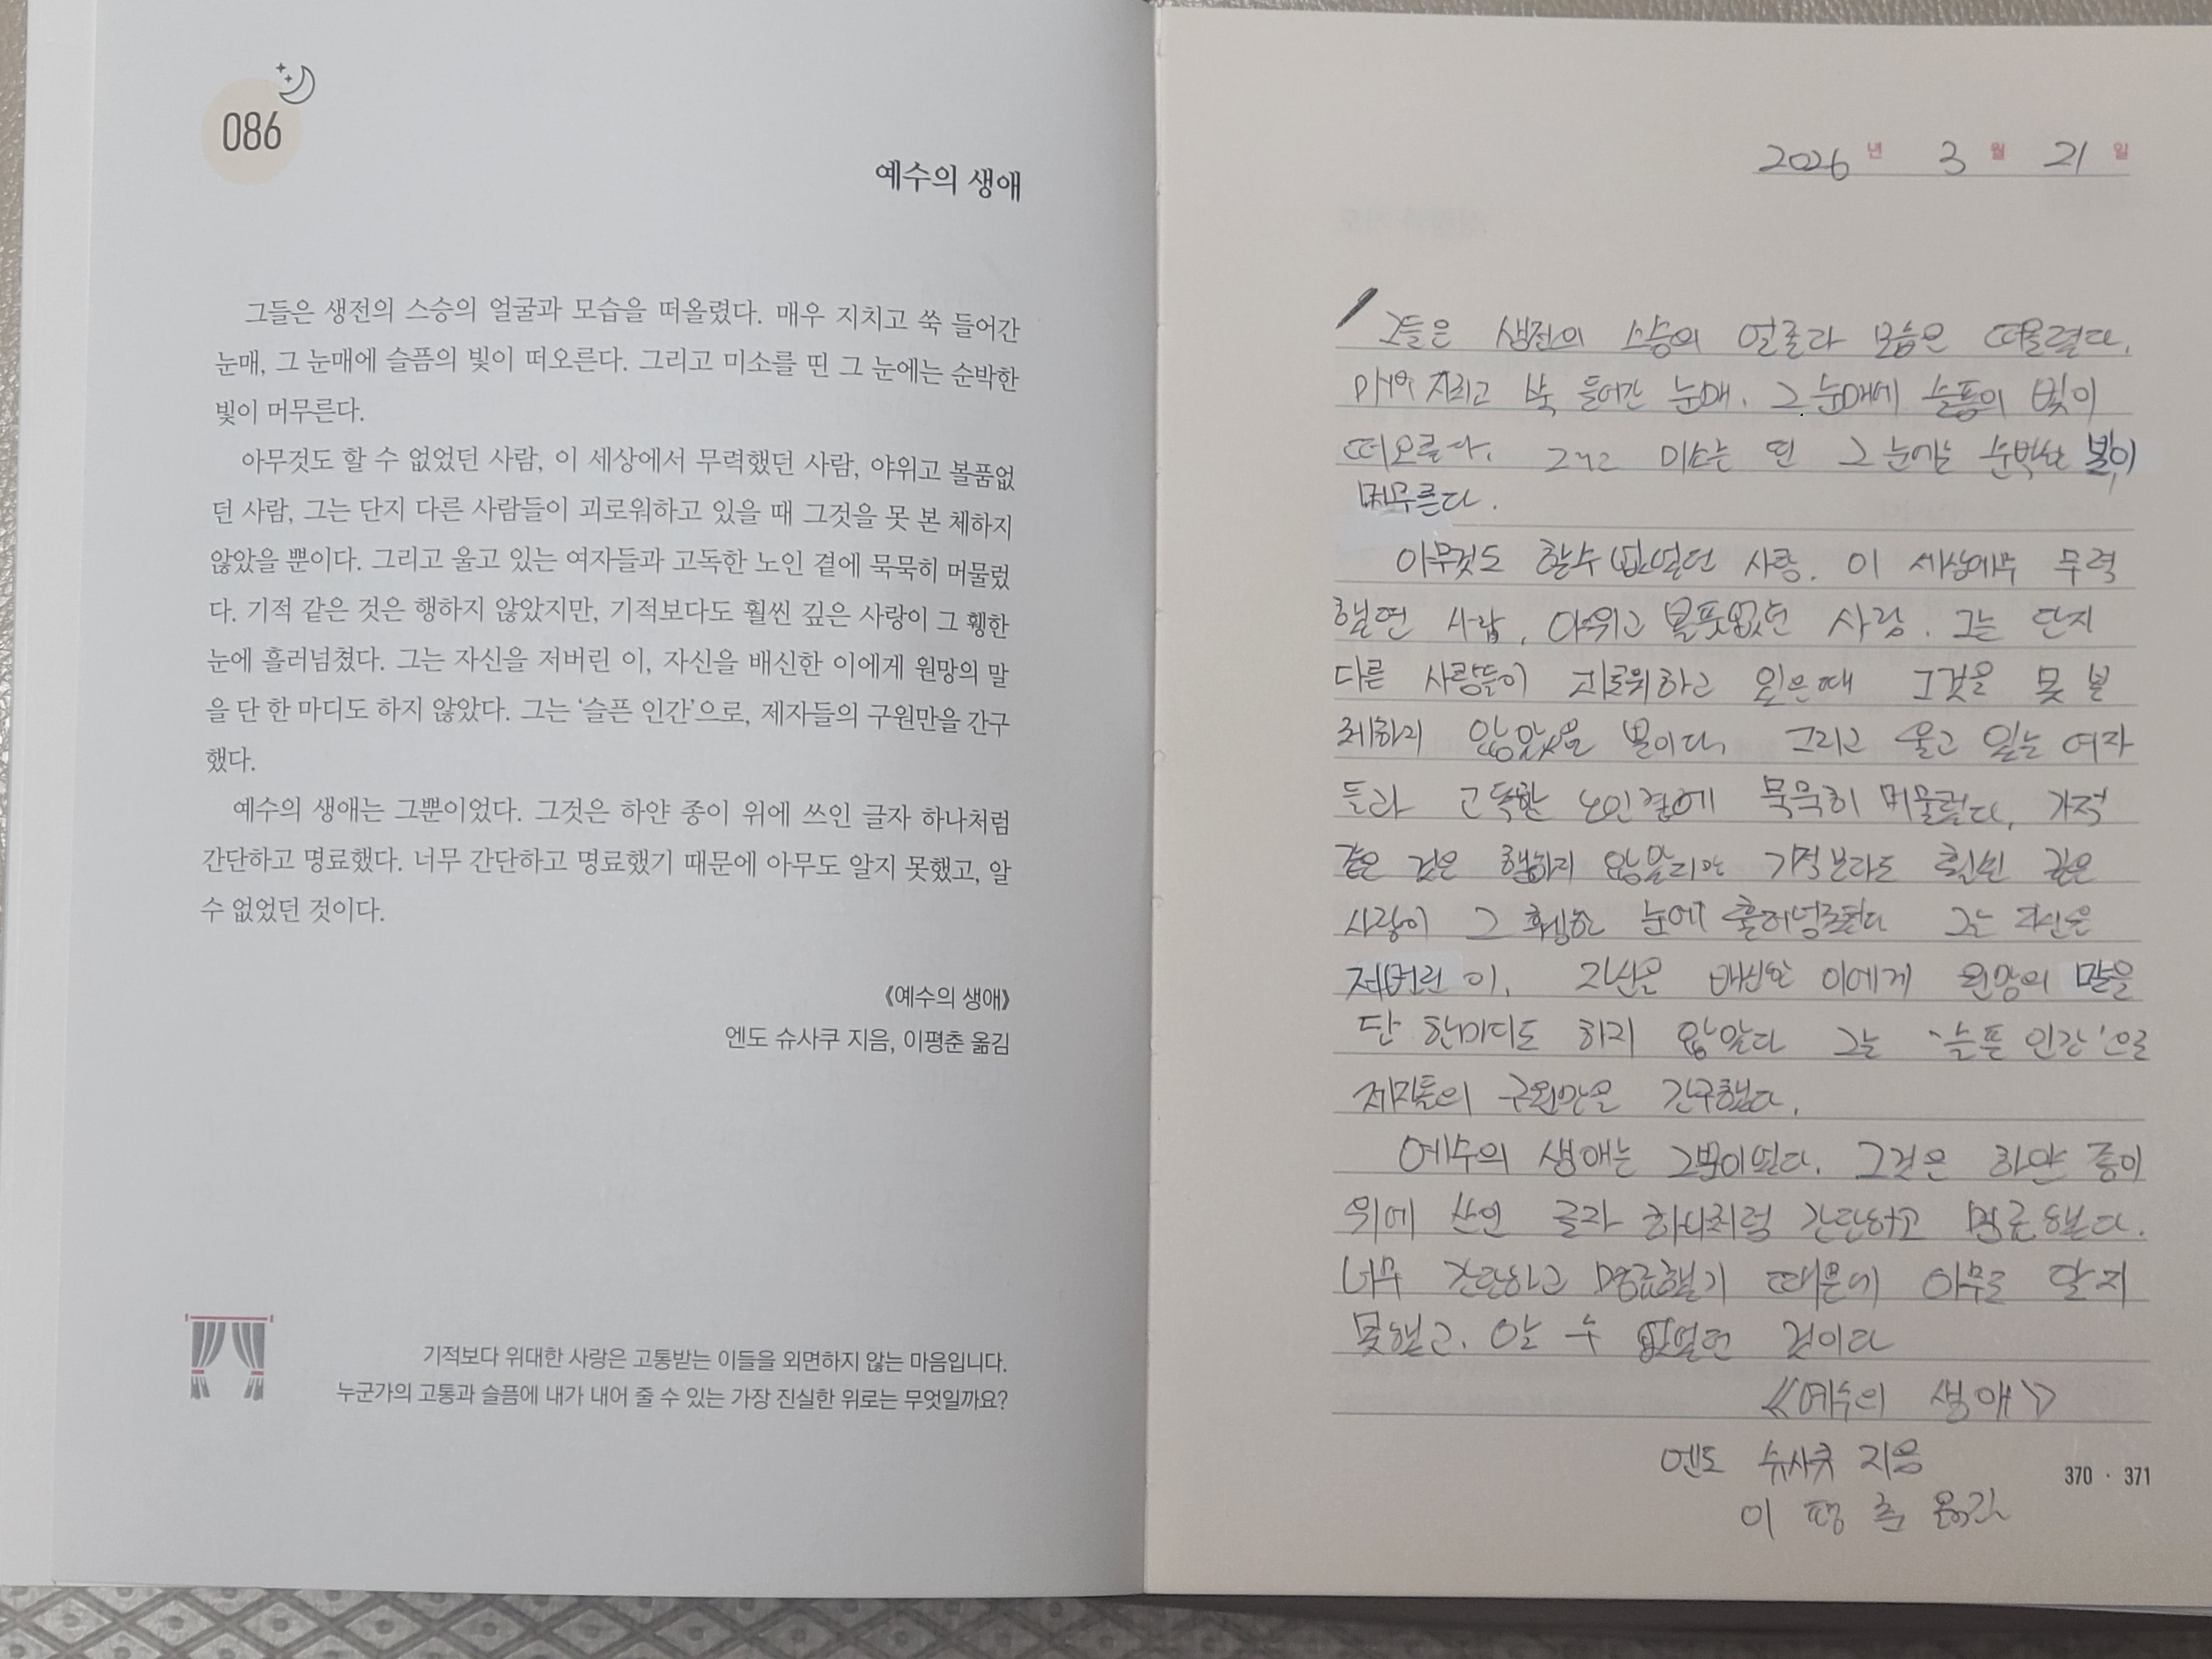 086
예수의 생애
그들은 생전의 스승의 얼굴과 모습을 떠올렸다. 매우 지치고 쑥 들어간
눈매, 그 눈매에 슬픔의 빛이 떠오른다. 그리고 미소를 띤 그 눈에는 순박한
빛이 머무른다.
아무것도 할 수 없었던 사람, 이 세상에서 무력했던 사람, 야위고 볼품없
던 사람, 그는 단지 다른 사람들이 괴로워하고 있을 때 그것을 못 본 체하지
않았을 뿐이다. 그리고 울고 있는 여자들과 고독한 노인 곁에 묵묵히 머물렀
다. 기적 같은 것은 행하지 않았지만, 기적보다도 훨씬 깊은 사랑이 그 휑한
눈에 흘러넘쳤다. 그는 자신을 저버린 이, 자신을 배신한 이에게 원망의 말
을 단 한 마디도 하지 않았다. 그는 ‘슬픈 인간’으로, 제자들의 구원만을 간구
했다.
예수의 생애는 그뿐이었다. 그것은 하얀 종이 위에 쓰인 글자 하나처럼
간단하고 명료했다. 너무 간단하고 명료했기 때문에 아무도 알지 못했고, 알
수 없었던 것이다.
《예수의 생애》
엔도 슈사쿠 지음, 이평춘 옮김
기적보다 위대한 사랑은 고통받는 이들을 외면하지 않는 마음입니다.
누군가의 고통과 슬픔에 내가 내어 줄 수 있는 가장 진실한 위로는 무엇일까요?
2026년 3월 21일
그들은 생전의 스승의 얼굴과 모습은 떠올렸다.
매우 지치고 쑥 들어간 눈매. 그 눈매에 슬픔의 빛이
떠오른다. 그리고 미소는 띤 그 눈에는 순박한 빛이
머무른다.
아무것도 할수 없었던 사람. 이 세상에서 무력
했던 사람, 야위고 볼품없던 사람. 그는 단지
다른 사람들이 괴로워하고 있을때 그것을 못 본
체하지 않았을 뿐이다. 그리고 울고 있는 여자
들과 고독한 노인곁에 묵묵히 머물렀다. 기적
같은 것은 행하지 않았지만 기적보다도 훨씬 깊은
사랑이 그 휑한 눈에 흘러넘쳤다 그는 자신은
저버린 이. 자신은 배신한 이에게 원망의 말을
단 한마디도 하지 않았다 그는 '슬픈 인간'으로
제자들의 구원만을 간구했다.
예수의 생애는 그뿐이었다. 그것은 하얀 종이
위에 쓰인 글자 하나처럼 간단하고 명료했다.
너무 간단하고 명료했기 때문에 아무도 알지
못했고. 알 수 없었던 것이다
《예수의 생애》
엔도 슈사쿠 지음
이 평 춘 옮김
370 · 371